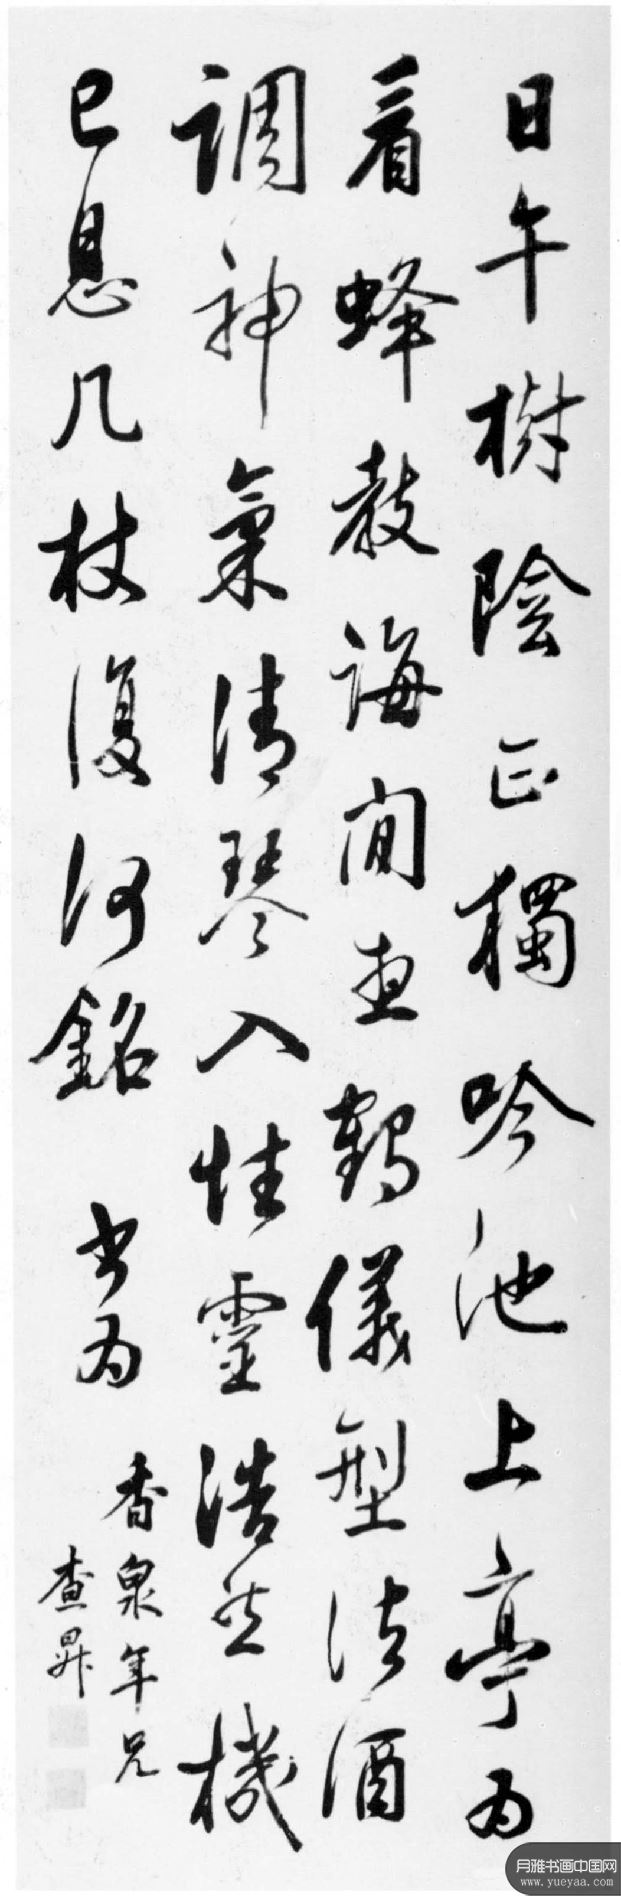 日午樹陰正獨吟池上亭為
看蜂教誨閒鶴儀型法酒
調神氣清琴入性靈浩然機
已息几杖復何銘 書為
香泉年兄
查昇
月雅书画中国网
www.yueyaa.com